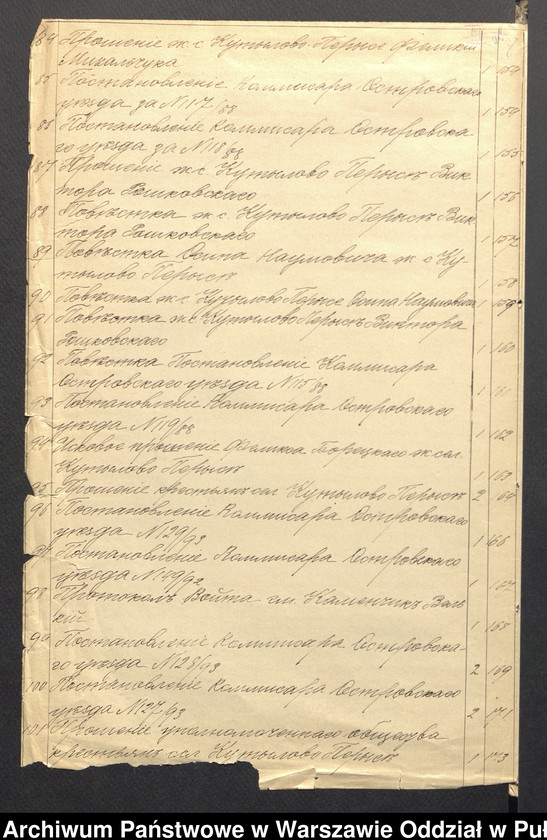 84 Прошеніе ж. с. Кутылово-Перысе Феликса
Михальчука 1 153
85 Постановленіе Коммисара Островскаго
уѣзда за №17/88 1 154
86 Постановленіе Коммисара Островска-
го уѣзда за №18/88 1 155
87 Прошеніе ж. с. Кутылово Перысъ Вик-
тора Рошковскаго 1 156
88 Повѣстка ж. с. Кутылово Перысъ Вик-
тора Рошковскаго 1 157
89 Повѣстка Осипа Наумовича ж. с. Ку-
тылово Перысъ 1 158
90 Повѣстка ж. с. Кутылово Перысе Осипа Наумовича 1 159
91 Повѣстка ж. с. Кутылово Перысъ Виктора
Рошковскаго 1 160
92 Повѣстка Постановленіе Коммисара
Островскаго уѣзда №15/93 1 161
93 Постановленіе Коммисара Островскаго
уѣзда №19/88 1 162
94 Исковое прошеніе Феликса Борецкаго ж. сел.
Кутылово Перысъ 1 163
95 Прошеніе крестьянъ сел. Кутылово-Перысъ 2 164
96 Постановленіе Коммисара Островскаго
уѣзда №29/93 1 166
97 Постановленіе Коммисара Островскаго
уѣзда №149/92 1 167
98 Протоколъ Войта гм. Каменчикъ Вель-
кій 1 168
99 Постановленіе Коммисара Островска-
го уѣзда №128/93 2 169
100 Постановленіе Коммисара Островскаго
уѣзда №27/93 2 171
101 Прошеніе уполномоченнаго общества
крестьянъ сел. Кутылово Перысъ 1 173
Archiwum Państwowe w Warszawie Oddział w Puł